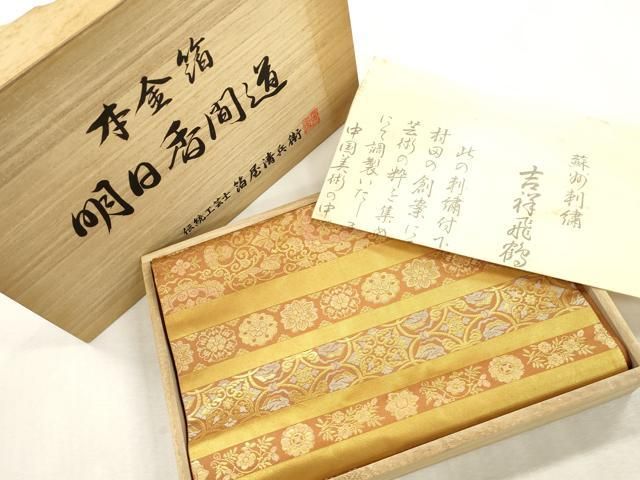 本金箔
明日香間道
伝統工芸士 箔屋清兵衛
蘇州刺繍
吉祥飛鶴
此の刺繍付下
村田の創案に
芸術の粋を集め
にて調製いた
中国美術の中